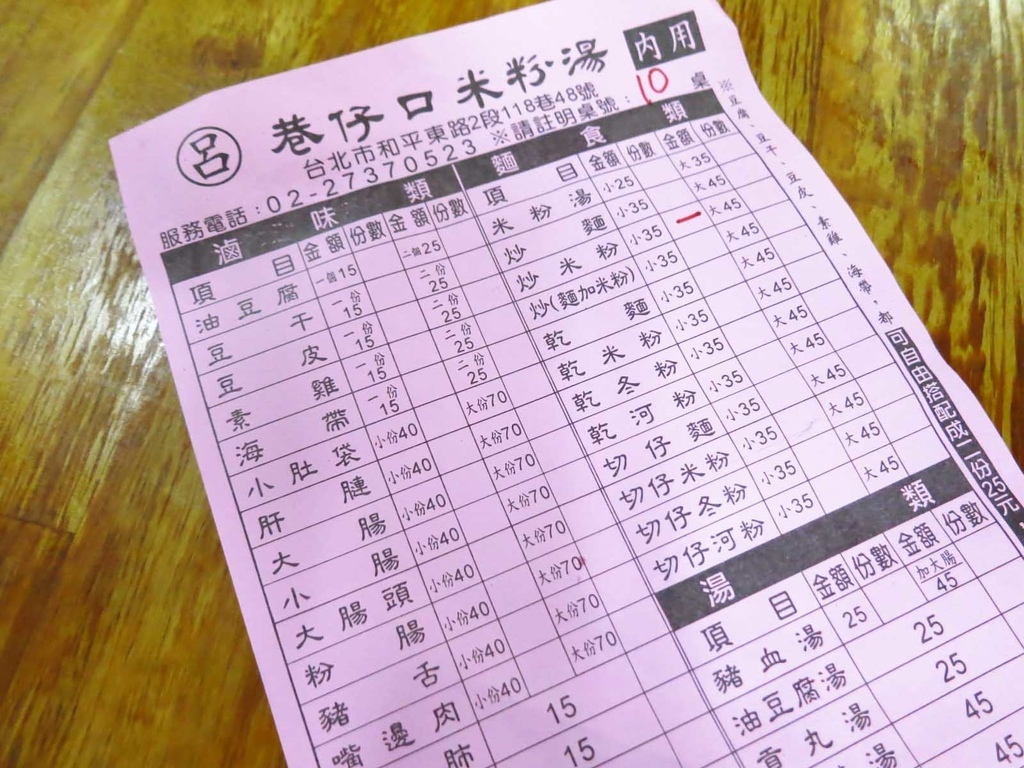 內用
呂 巷仔口米粉湯
台北市和平東路2段118巷48號
服務電話:02-27370523 ※請註明桌號: 10 桌
滷味類
項目 金額 份數 金額 份數
油豆腐 一個15 二個25
豆干 一份15 二份25
豆皮 一份15 二份25
素雞 一份15 二份25
海帶 一份15 二份25
小肚袋 小份40 大份70
肝膇 小份40 大份70
大腸 小份40 大份70
小腸 小份40 大份70
大腸頭 小份40 大份70
粉腸 小份40 大份70
豬舌 小份40 大份70
嘴邊肉 小份40 大份70
肺 15
15
麵食類
項目 金額 份數 金額 份數
米粉湯 小25 大35
炒麵 小35 大45
炒米粉 小35 一 大45
炒(麵加米粉) 小35 大45
乾麵 小35 大45
乾米粉 小35 大45
乾冬粉 小35 大45
乾河粉 小35 大45
切仔麵 小35 大45
切仔米粉 小35 大45
切仔冬粉 小35 大45
切仔河粉 小35 大45
湯類
項目 金額 份數 金額 份數
豬血湯 25 加大腸45
油豆腐湯 25
貢丸湯 25
湯 45
45
※豆腐、豆干、豆皮、素雞、海帶,都可自由搭配成二份25元